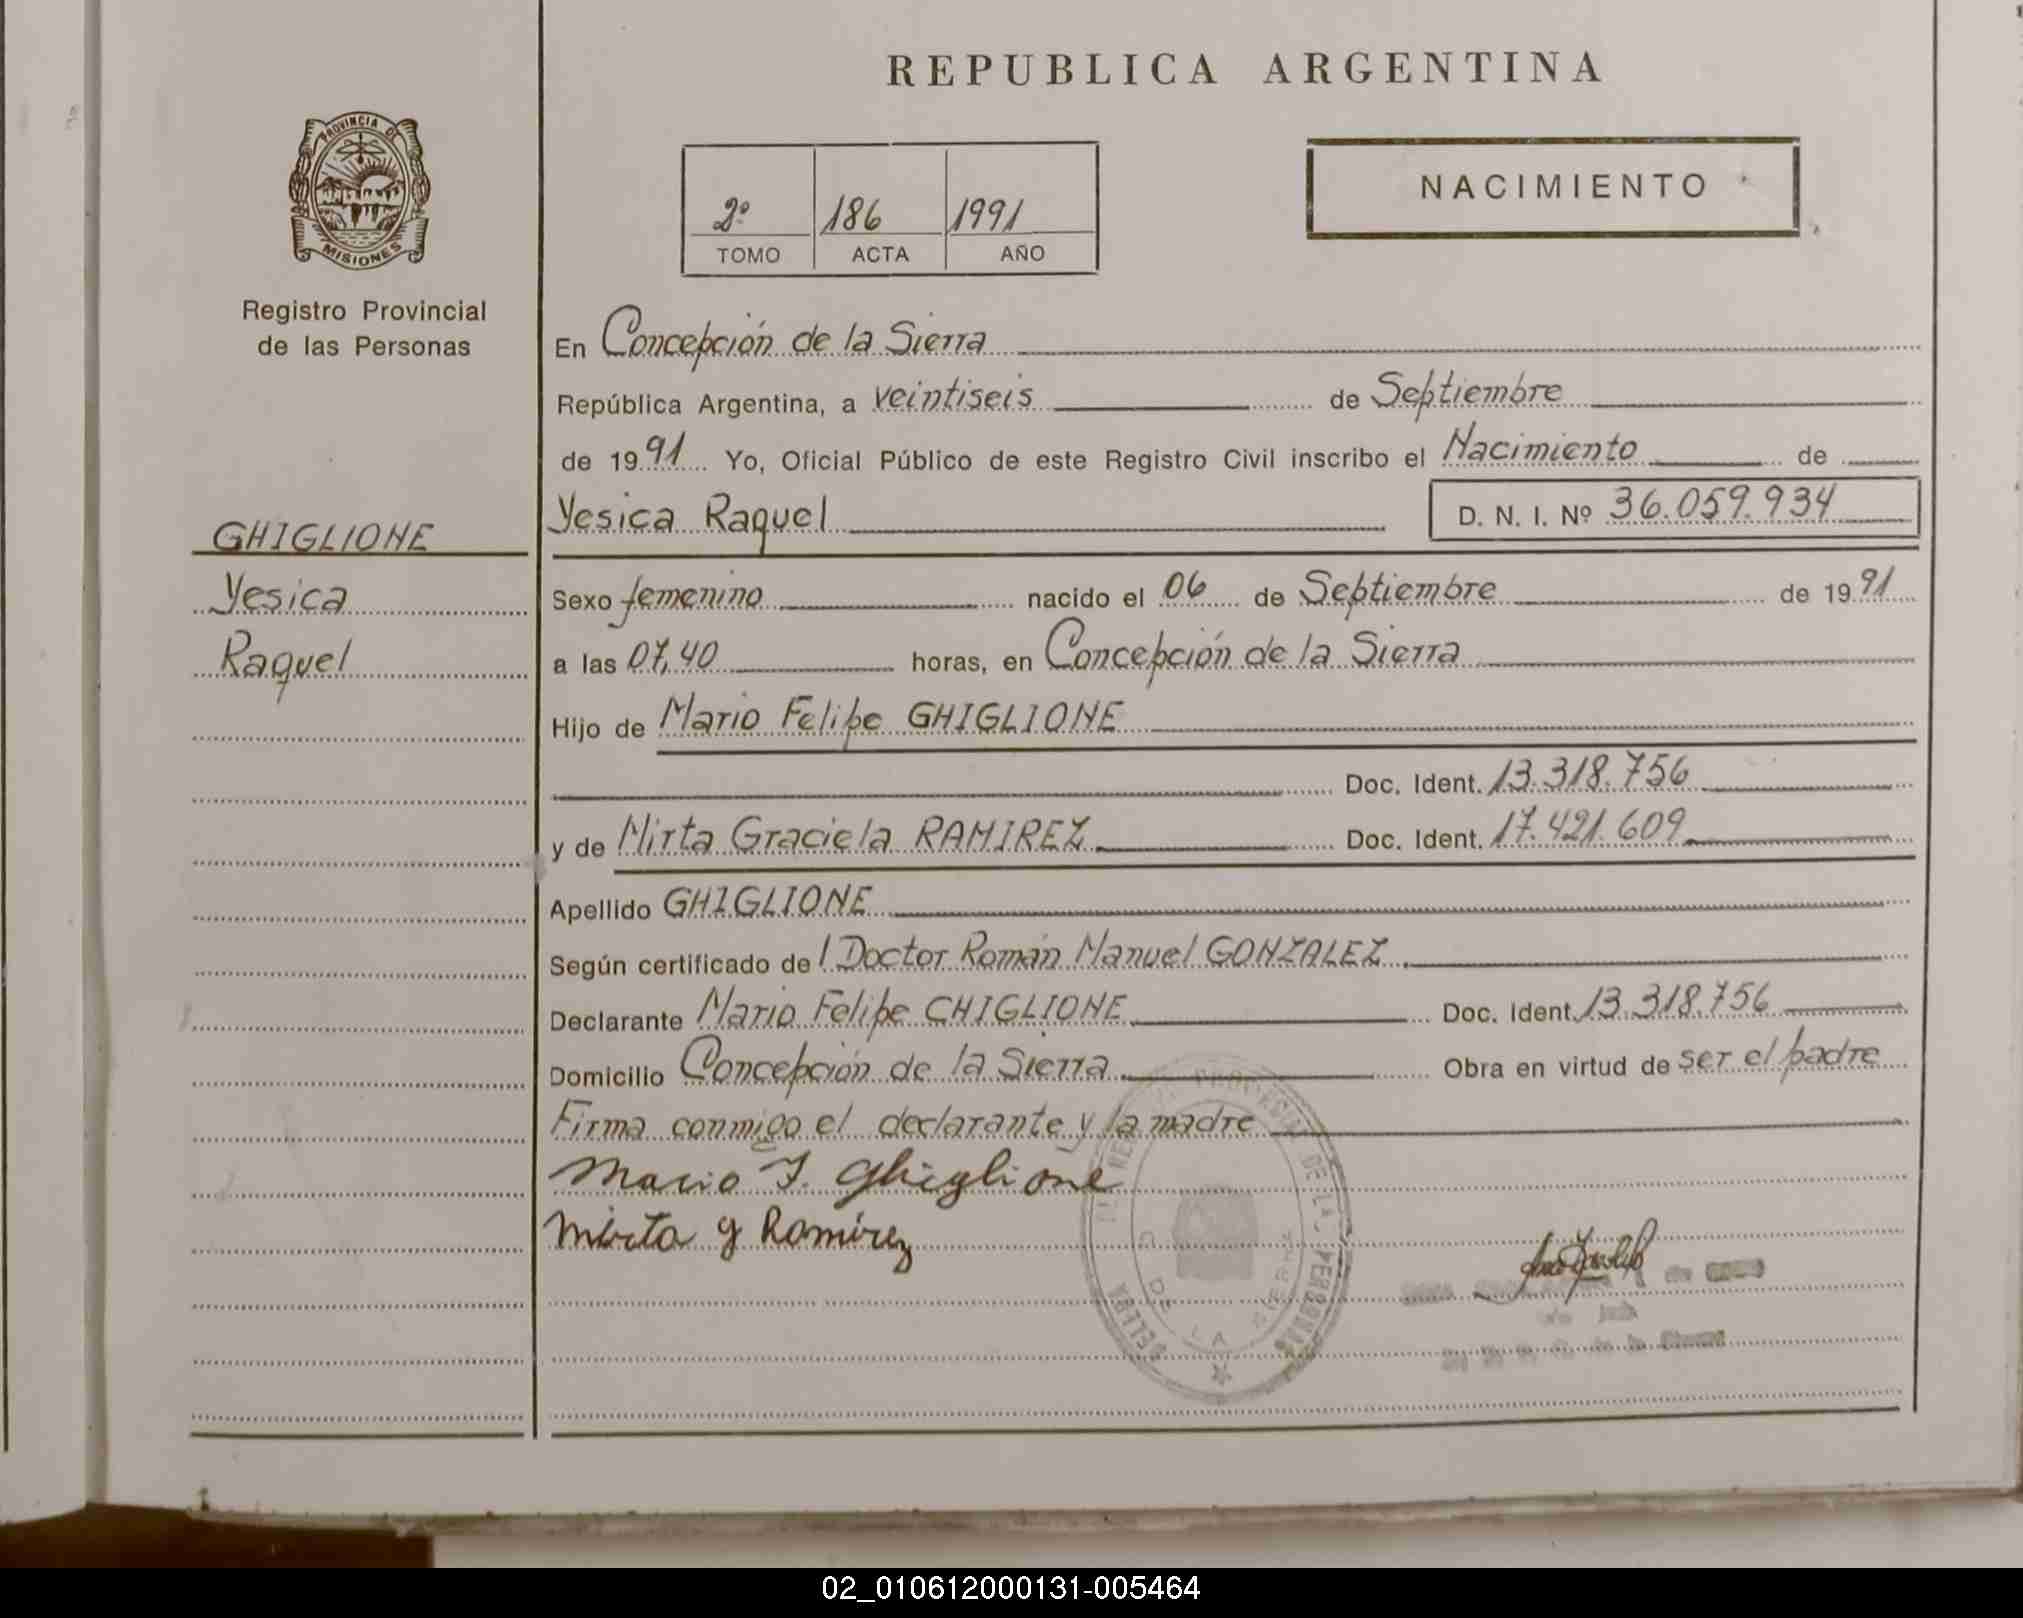 REPUBLICA ARGENTINA
PROVINCIA DE
MISIONES
Registro Provincial
de las Personas
2º 186 1991
TOMO ACTA AÑO
NACIMIENTO
En Concepción de la Sierra
República Argentina, a veintiseis de Septiembre
de 1991 Yo, Oficial Público de este Registro Civil inscribo el Nacimiento de
Yesica Raquel D. N. I. Nº 36.059.934
GHIGLIONE
Yesica
Raquel
Sexo femenino nacido el 06 de Septiembre de 1991
a las 07,40 horas, en Concepción de la Sierra
Hijo de Mario Felipe GHIGLIONE
Doc. Ident. 13.318.756
y de Mirta Graciela RAMIREZ Doc. Ident. 17.421.609
Apellido GHIGLIONE
Según certificado del Doctor Román Manuel GONZALEZ
Declarante Mario Felipe CHIGLIONE Doc. Ident. 13.318.756
Domicilio Concepción de la Sierra Obra en virtud de ser el padre
Firma conmigo el declarante y la madre
Mario F. Ghiglione
Mirta g Ramírez
DE LAS PERSONAS
DE LA SIERRA
02_010612000131-005464